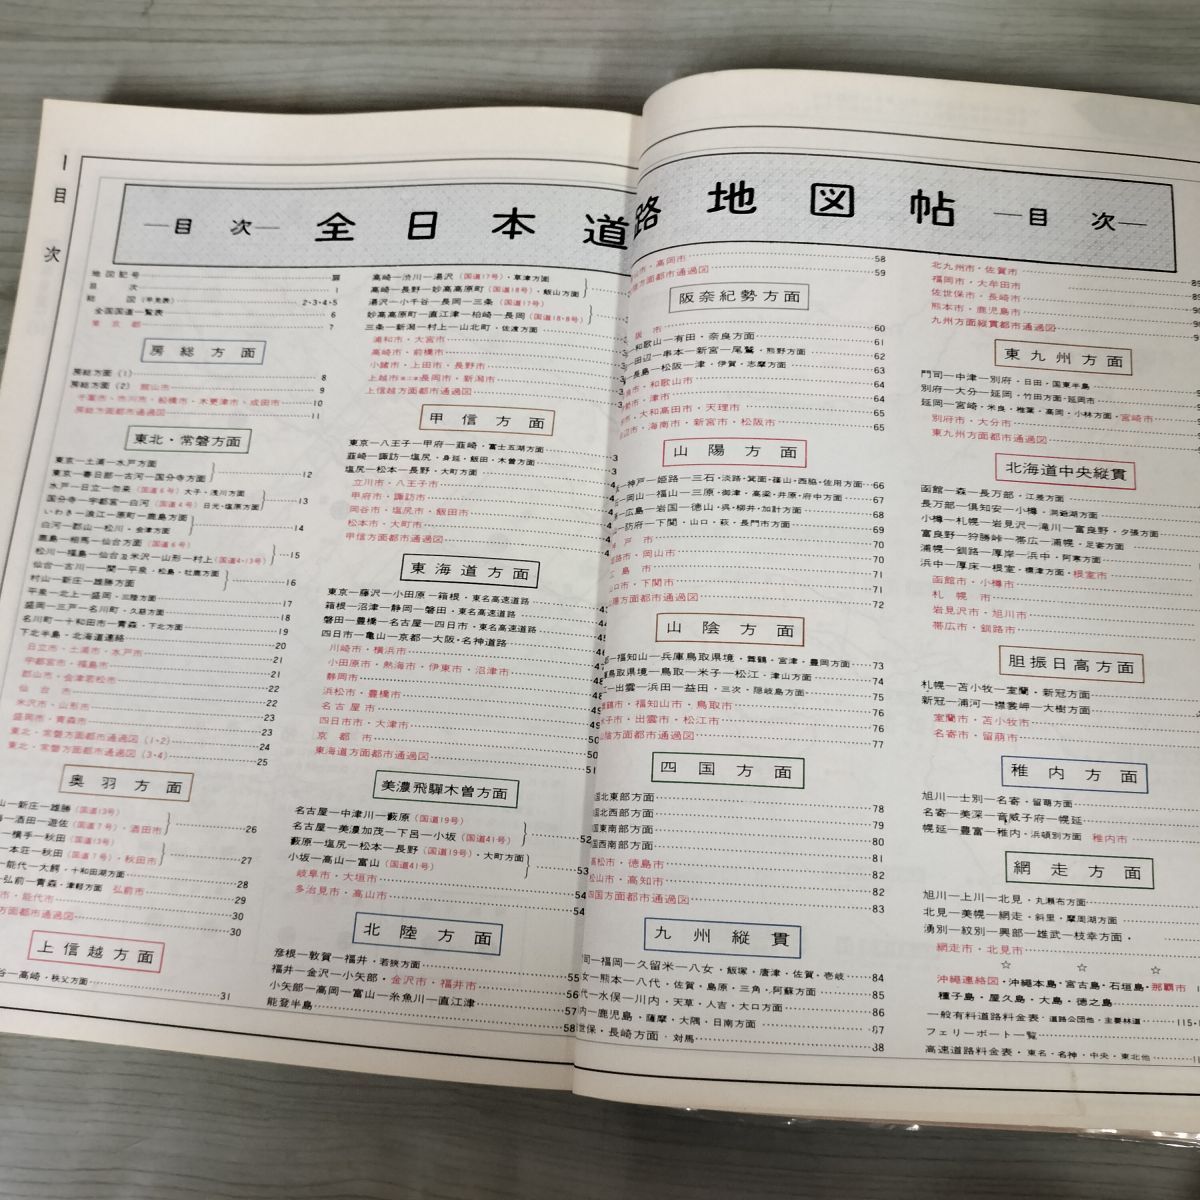 1目次
―目次― 全日本道路地図帖 ―目次―
地図記号 扉
目次 1
総図(早見表) 2・3・4・5
全国国道一覧表 6
東京都 7
房総方面
房総方面(1) 8
房総方面(2) 館山市 9
千葉市、市川市、船橋市・木更津市、成田市 10
房総方面都市通過図 11
東北・常磐方面
東京―土浦―水戸方面
東京―春日部―古河―国分寺方面 12
水戸―日立―勿来(国道6号)大子・浅川方面
国分寺―宇都宮―白河(国道4号)日光・塩原方面 13
いわき―浪江―原町―鹿島方面
白河―郡山―松川・会津方面 14
鹿島―相馬―仙台方面(国道6号)
松川―福島―仙台及米沢―山形―村上(国道4・13号) 15
仙台―古川―一関―平泉・松島・牡鹿方面
村山―新庄―雄勝方面 16
平泉―北上―盛岡・三陸方面 17
盛岡―三戸―名川町・久慈方面 18
名川町―十和田市―青森・下北方面 19
下北半島・北海道連絡 20
日立市・土浦市・水戸市 21
宇都宮市・福島市 21
郡山市・会津若松市 22
仙台市 22
米沢市・山形市 23
盛岡市・青森市 23
東北・常磐方面都市通過図(1・2) 24
東北・常磐方面都市通過図(3・4) 25
奥羽方面
山―新庄―雄勝(国道13号)
―酒田―遊佐(国道7号)・酒田市 26
―横手―秋田(国道13号)
―本荘―秋田(国道7号)・秋田市 27
―能代―大鰐・十和田湖方面 28
―弘前―青森・津軽方面 弘前市 29
市・能代市 30
方面都市通過図 30
上信越方面
谷―高崎・秩父方面 31
高崎―渋川―湯沢(国道17号)・草津方面
高崎―長野―妙高高原町(国道18号)・飯山方面
湯沢―小千谷―長岡―三条(国道17号)
妙高高原町―直江津―柏崎―長岡(国道18・8号)
三条―新潟―村上―山北町・佐渡方面
浦和市・大宮市
高崎市・前橋市
小諸市・上田市・長野市
上越市・長岡市・新潟市
上信越方面都市通過図
甲信方面
東京―八王子―甲府―韮崎・富士五湖方面
韮崎―諏訪―塩尻・身延・飯田・木曽方面
塩尻―松本―長野・大町方面
立川市・八王子市
甲府市・諏訪市
岡谷市・塩尻市・飯田市
松本市・大町市
甲信方面都市通過図
東海道方面
東京―藤沢―小田原―箱根・東名高速道路
箱根―沼津―静岡―磐田・東名高速道路
磐田―豊橋―名古屋―四日市・東名高速道路
四日市―亀山―京都―大阪・名神道路
川崎市・横浜市
小田原市・熱海市・伊東市・沼津市
静岡市
浜松市・豊橋市
名古屋市
四日市市・大津市
京都市 50
東海道方面都市通過図 51
美濃飛驒木曽方面
名古屋―中津川―藪原(国道19号)
名古屋―美濃加茂―下呂―小坂(国道41号) 52
藪原―塩尻―松本―長野(国道19号)・大町方面
小坂―高山―富山(国道41号) 53
岐阜市・大垣市 54
多治見市・高山市 54
北陸方面
彦根―敦賀―福井・若狭方面 55
福井―金沢―小矢部・金沢市・福井市 56
小矢部―高岡―富山―糸魚川―直江津 57
能登半島 58
山市・高岡市 58
陸方面都市通過図 59
阪奈紀勢方面
阪市 60
―和歌山―有田・奈良方面 61
―田辺―串本―新宮―尾鷲・熊野方面 62
―長島―松阪―津・伊賀・志摩方面 63
良市・和歌山市 64
勢市・津市 64
市・大和高田市・天理市 65
辺市・海南市・新宮市・松阪市 65
山陽方面
―神戸―姫路―三石・淡路・箕面・篠山・西脇・佐用方面 66
―岡山―福山―三原・御津・高梁・井原・府中方面 67
―広島―岩国―徳山・呉・柳井・加計方面 68
―防府―下関・山口・萩・長門市方面 69
神戸市 70
路市・岡山市 70
広島市 71
山口市・下関市 71
陽方面都市通過図 72
山陰方面
都―福知山―兵庫鳥取県境・舞鶴・宮津・豊岡方面 73
庫鳥取県境―鳥取―米子―松江・津山方面 74
江―出雲―浜田―益田・三次・隠岐島方面 75
舞鶴市・福知山市・鳥取市 76
米子市・出雲市・松江市 76
山陰方面都市通過図 77
四国方面
国北東部方面 78
国北西部方面 79
国東南部方面 80
国西南部方面 81
高松市・徳島市 82
松山市・高知市 82
四国方面都市通過図 83
九州縦貫
司―福岡―久留米―八女・飯塚・唐津・佐賀・壱岐 84
女―熊本―八代・佐賀・島原・三角・阿蘇方面 85
代―水俣―川内・天草・人吉・大口方面 86
内―鹿児島・薩摩・大隅・日南方面 87
世保・長崎方面・対馬 88
北九州市・佐賀市
福岡市・大牟田市
佐世保市・長崎市
熊本市・鹿児島市
九州方面縦貫都市通過図
東九州方面
門司―中津―別府・日田・国東半島
別府―大分―延岡・竹田方面・延岡市
延岡―宮崎・米良・椎葉・高岡・小林方面・宮崎市
別府市・大分市
東九州方面都市通過図
北海道中央縦貫
函館―森―長万部・江差方面
長万部―倶知安―小樽・洞爺湖方面
小樽―札幌―岩見沢―滝川―富良野・夕張方面
富良野―狩勝峠―帯広―浦幌・足寄方面
浦幌―釧路―厚岸―浜中・阿寒方面
浜中―厚床―根室・標津方面・根室市
函館市・小樽市
札幌市
岩見沢市・旭川市
帯広市・釧路市
胆振日高方面
札幌―苫小牧―室蘭・新冠方面
新冠―浦河―襟裳岬―大樹方面
室蘭市・苫小牧市
名寄市・留萌市
稚内方面
旭川―士別―名寄・留萌方面
名寄―美深―音威子府―幌延
幌延―豊富―稚内・浜頓別方面 稚内市
網走方面
旭川―上川―北見・丸瀬布方面
北見―美幌―網走・斜里・摩周湖方面
湧別―紋別―興部―雄武―枝幸方面・
網走市・北見市
☆ ☆ ☆
沖縄連絡図・沖縄本島・宮古島・石垣島・那覇市
種子島・屋久島・大島・徳之島
一般有料道路料金表・道路公団他・主要林道 115・1
フェリーボート一覧
高速道路料金表・東名・名神・中央・東北他